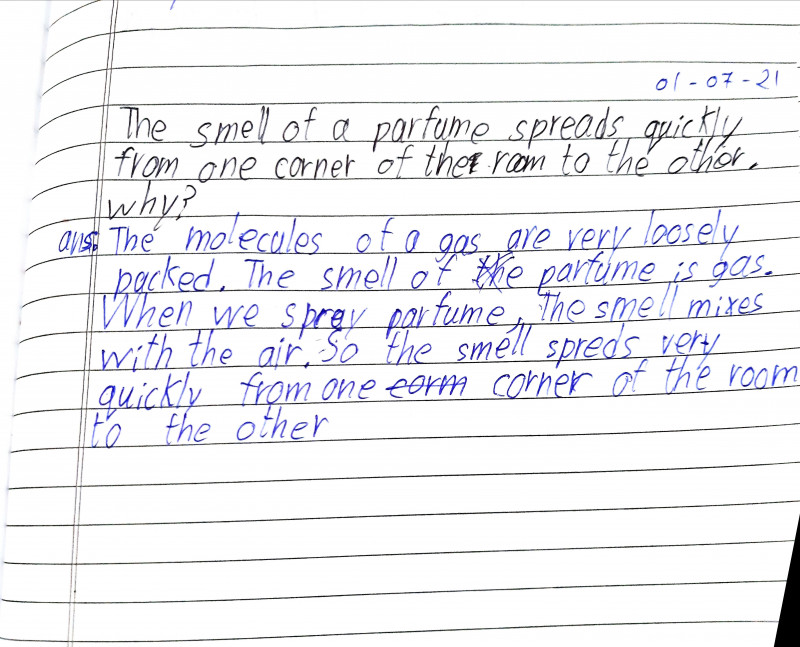 01-07-21
The smell of a parfume spreads quickly
from one corner of the room to the other.
why?
ans: The molecules of a gas are very loosely
packed. The smell of the parfume is gas.
When we spray parfume, the smell mixes
with the air. So the smell spreds very
quickly from one corm corner of the room
to the other